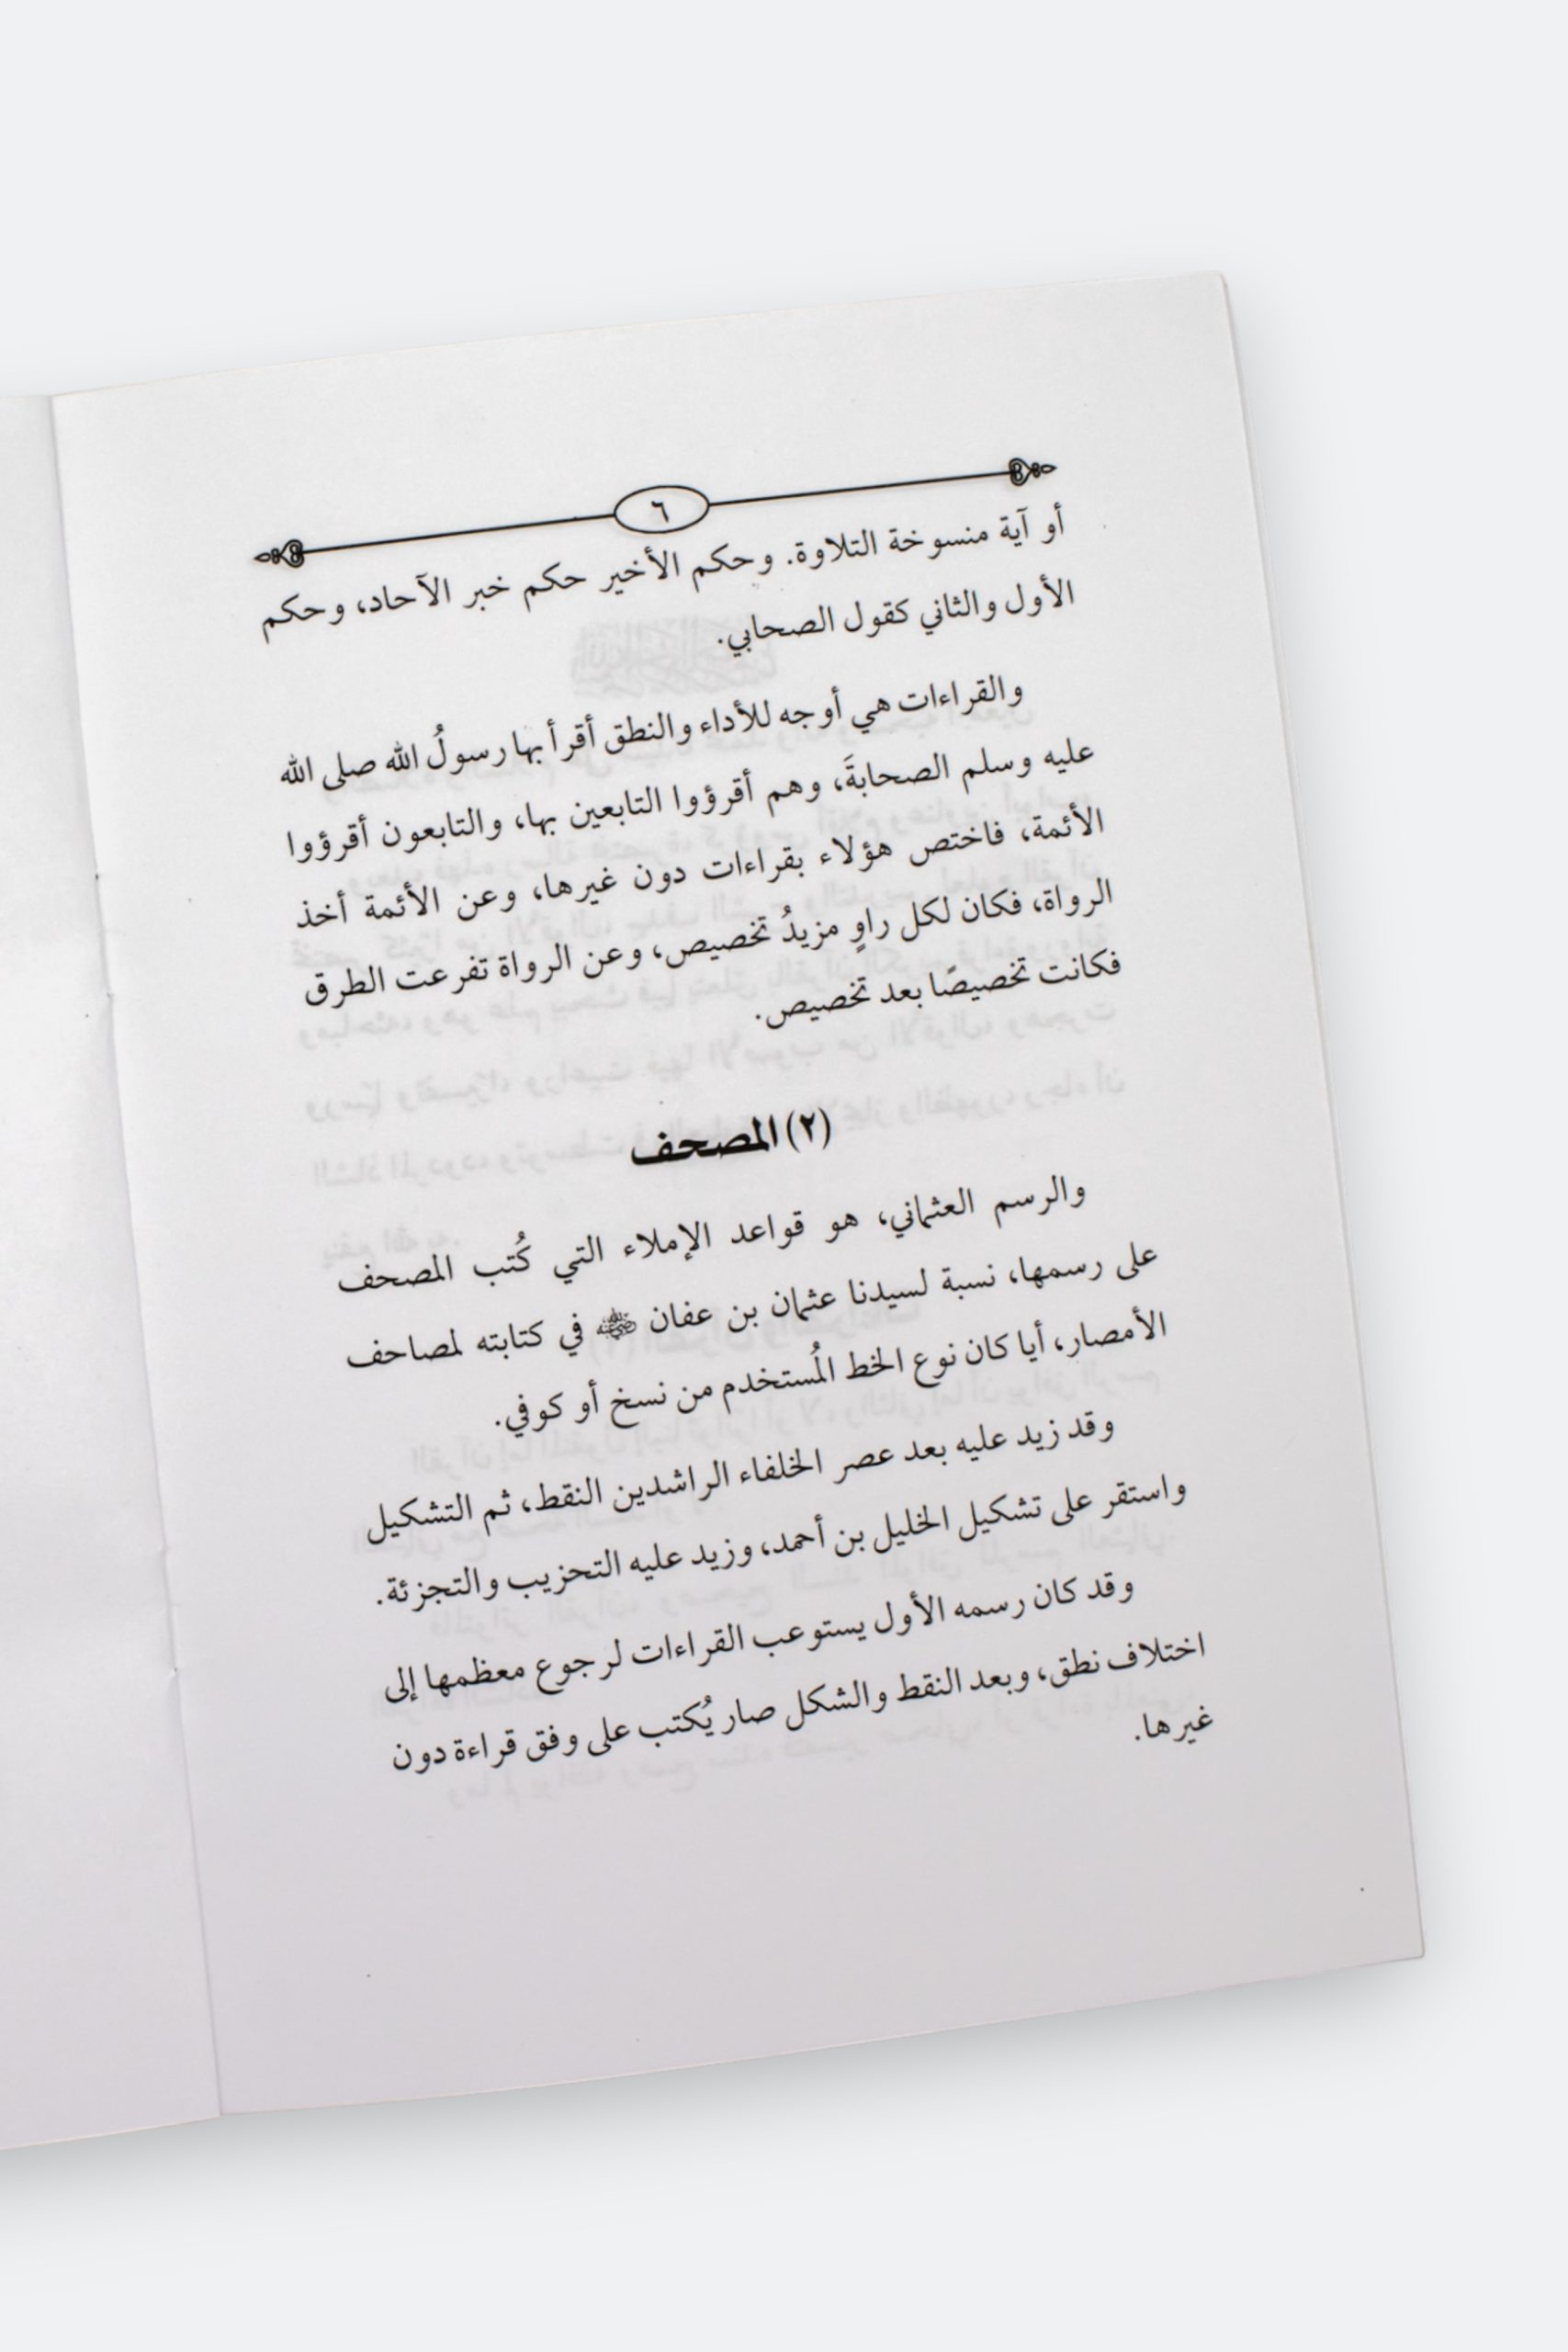 ٦
أو آية منسوخة التلاوة. وحكم الأخير حكم خبر الآحاد، وحكم
الأول والثاني كقول الصحابي.
والقراءات هي أوجه للأداء والنطق أقرأ بها رسولُ الله صلى الله
عليه وسلم الصحابةَ، وهم أقرؤوا التابعين بها، والتابعون أقرؤوا
الأئمة، فاختص هؤلاء بقراءات دون غيرها، وعن الأئمة أخذ
الرواة، فكان لكل راوٍ مزيدُ تخصيص، وعن الرواة تفرعت الطرق
فكانت تخصيصًا بعد تخصيص.
(٢) المصحف
والرسم العثماني، هو قواعد الإملاء التي كُتب المصحف
على رسمها، نسبة لسيدنا عثمان بن عفان رضي الله عنه في كتابته لمصاحف
الأمصار، أيا كان نوع الخط المُستخدم من نسخ أو كوفي.
وقد زيد عليه بعد عصر الخلفاء الراشدين النقط، ثم التشكيل
واستقر على تشكيل الخليل بن أحمد، وزيد عليه التحزيب والتجزئة.
وقد كان رسمه الأول يستوعب القراءات لرجوع معظمها إلى
اختلاف نطق، وبعد النقط والشكل صار يُكتب على وفق قراءة دون
غيرها.